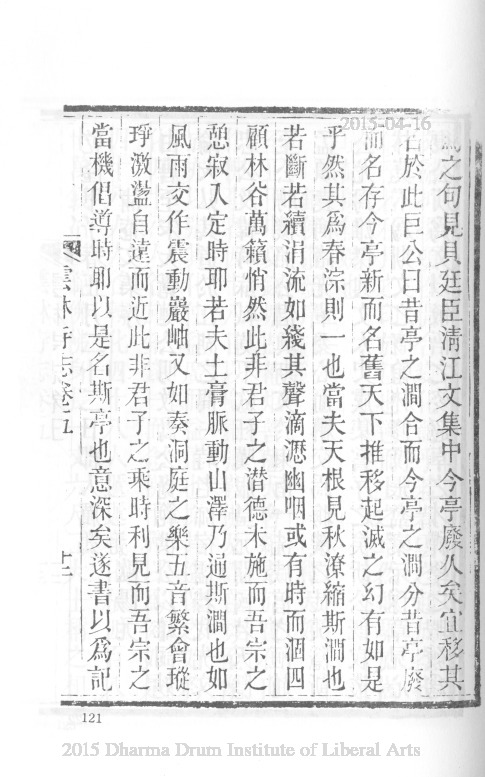 2015-04-16
之句見貝廷臣清江文集中今亭廢久矣宜移其
名於此巨公曰昔亭之澗合而今亭之澗分昔亭廢
而名存今亭新而名舊天下推移起滅之幻有如是
乎然其為春淙則一也當夫天根見秋潦縮斯澗也
若斷若續涓流如綫其聲滴瀝幽咽或有時而涸四
顧林谷萬籟悄然此非君子之潜德未施而吾宗之
憩寂入定時耶若夫土膏脈動山澤乃通斯澗也如
風雨交作震動巖岫又如奏洞庭之樂五音繁會瑽
琤激盪自遠而近此非君子之乘時利見而吾宗之
當機倡導時耶以是名斯亭也意深矣遂書以為記
雲林寺志卷五
十二
121
2015 Dharma Drum Institute of Liberal Arts